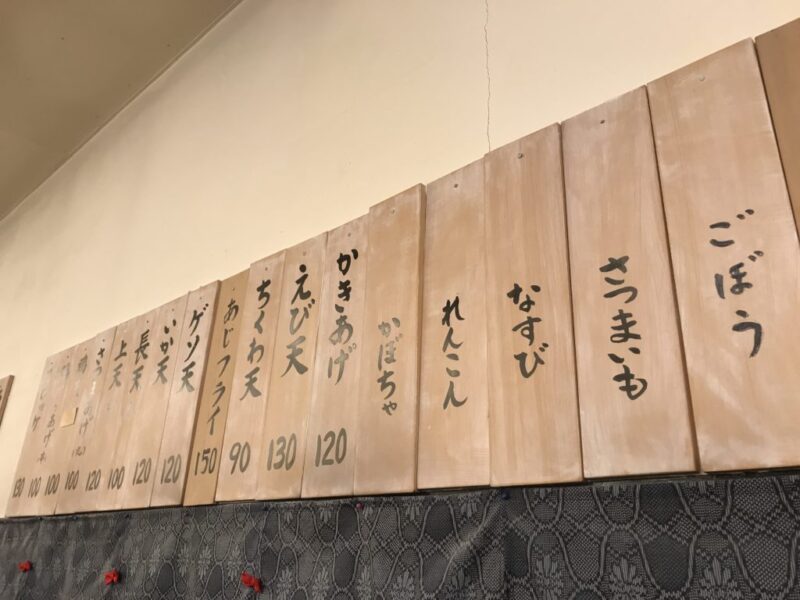 ごぼう
さつまいも
なすび
れんこん
かぼちゃ
かきあげ 120
えび天 130
ちくわ天 90
あじフライ 150
ゲソ天 120
いか天 120
長天 100
上天 120
100
100
100
130